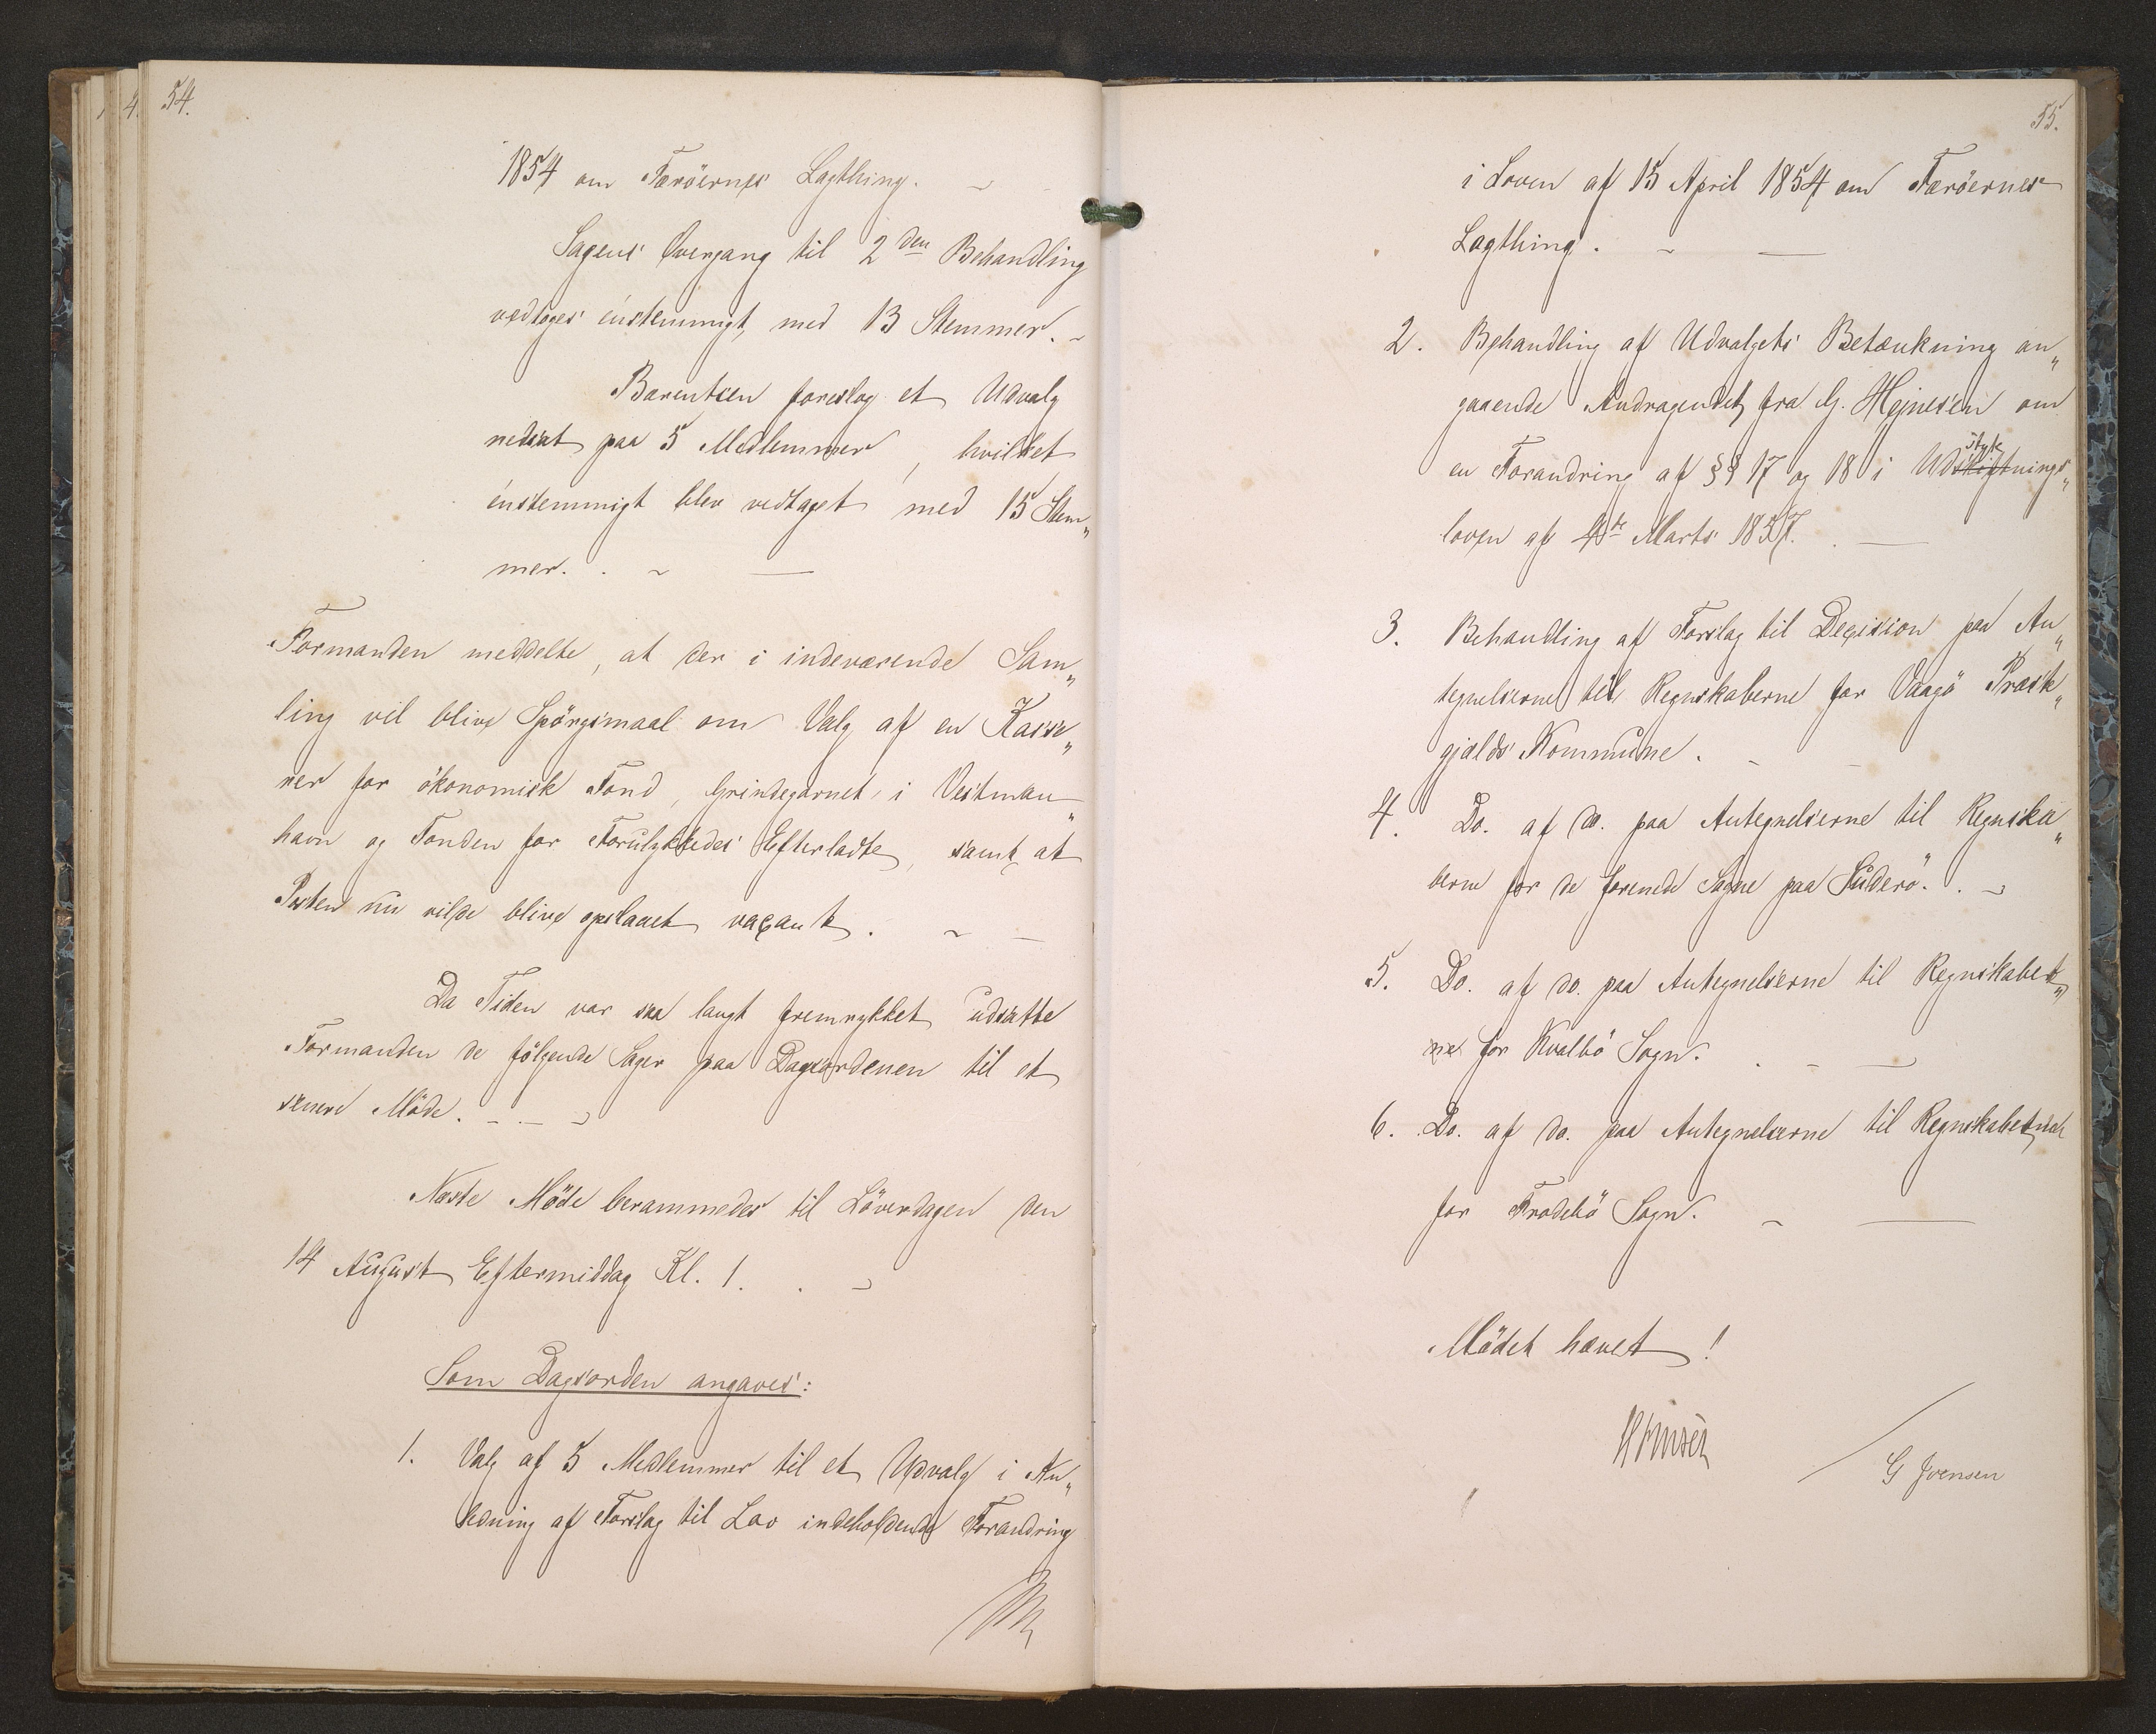 54.
1854 om Færöernes Lagthing. ~
Sagens Overgang til 2den Behandling
vedtoges énstemmigt, med 13 Stemmer. ~
Barentsen foreslog et Udvalg
nedsat paa 5 Medlemmer, hvilket
énstemmigt blev vedtaget med 15 Stem„
mer. . ~ —
Formanden meddelte, at der i indeværende Sam„
ling vil blive Spörgsmaal om Valg af en Kasse„
rer for ökonomisk Fond, Grindegarnet i Vestman„
havn og Fonden for Forulykkedes Efterladte, samt at
Posten nu vilde blive opslaaet vacant. ~ —
Da Tiden var saa langt fremrykket udsatte
Formanden de fölgende Sager paa Dagsordenen til et
senere Möde. - . — ~
Næste Möde berammedes til Löverdagen den
14 August Eftermiddag Kl. 1. . ~
Som Dagsorden angaves:
1. Valg af 5 Medlemmer til et Udvalg i An„
ledning af Forslag til Lov indeholdende Forandring
55.
i Loven af 15 April 1854 om Færöernes
Lagthing. ~ —
2. Behandling af Udvalgets Betænkning an„
gaaende Andragendet fra G. Hejnesen om
en Forandring af §§ 17 og 18 i Udskiftnings„
stykk
loven af 4de Marts 1857. . —
3. Behandling af Forslag til Decision paa An„
tegnelserne til Regnskaberne for Vaagö Præste„
gjælds Kommune. - -
4. Do. af do. paa Antegnelserne til Regnska„
berne for de forenede Sogne paa Suderö. . ~
5. Do. af do. paa Antegnelserne til Regnskabet„
ne for Kvalbö Sogn. . - —
6. Do. af do. paa Antegnelserne til Regnskabet
for Frodebö Sogn. ~ —
Mödet hævet!
HFinsen
/ G Joensen